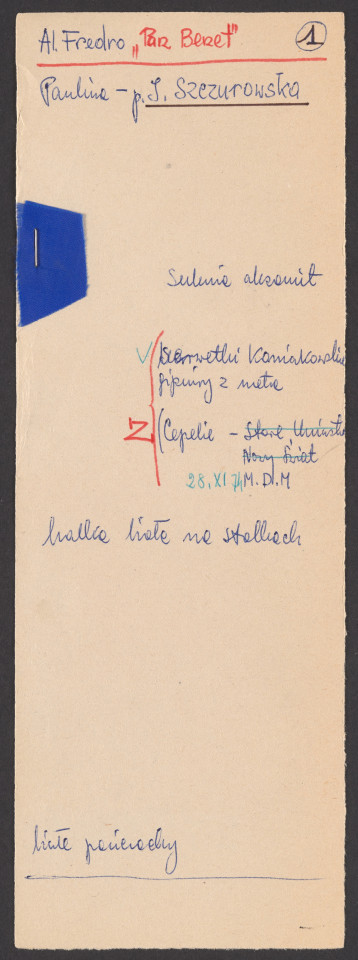 Al. Fredro "Pan Benet" 1
Paulina - p. J. Szczurowska
Suknia aksamit
V serwetki Koniakowskie
gipiury z metra
Z (Cepelie - Stare Miasto
Nowy Świat
28.XI 71 M.D.M
halka biała na stalkach
białe pończochy